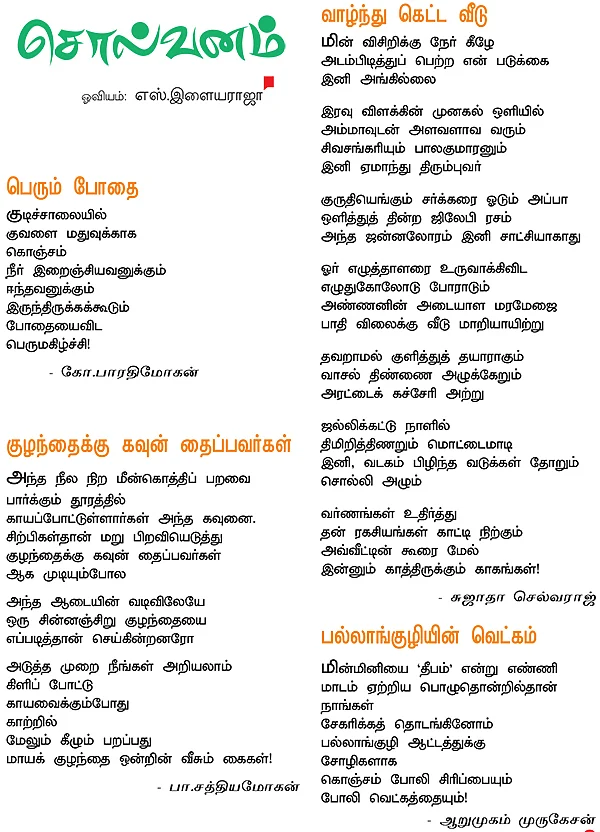 சொல்வனம்
ஓவியம்: எஸ்.இளையராஜா
பெரும் போதை
குடிச்சாலையில்
குவளை மதுவுக்காக
கொஞ்சம்
நீர் இறைஞ்சியவனுக்கும்
ஈந்தவனுக்கும்
இருந்திருக்கக்கூடும்
போதையைவிட
பெருமகிழ்ச்சி!
- கோ.பாரதிமோகன்
குழந்தைக்கு கவுன் தைப்பவர்கள்
அந்த நீல நிற மீன்கொத்திப் பறவை
பார்க்கும் தூரத்தில்
காயப்போட்டுள்ளார்கள் அந்த கவுனை.
சிற்பிகள்தான் மறு பிறவியெடுத்து
குழந்தைக்கு கவுன் தைப்பவர்கள்
ஆக முடியும்போல
அந்த ஆடையின் வடிவிலேயே
ஒரு சின்னஞ்சிறு குழந்தையை
எப்படித்தான் செய்கின்றனரோ
அடுத்த முறை நீங்கள் அறியலாம்
கிளிப் போட்டு
காயவைக்கும்போது
காற்றில்
மேலும் கீழும் பறப்பது
மாயக் குழந்தை ஒன்றின் வீசும் கைகள்!
- பா.சத்தியமோகன்
வாழ்ந்து கெட்ட வீடு
மின் விசிறிக்கு நேர் கீழே
அடம்பிடித்துப் பெற்ற என் படுக்கை
இனி அங்கில்லை
இரவு விளக்கின் முனகல் ஒளியில்
அம்மாவுடன் அளவளாவ வரும்
சிவசங்கரியும் பாலகுமாரனும்
இனி ஏமாந்து திரும்புவர்
குருதியெங்கும் சர்க்கரை ஓடும் அப்பா
ஒளித்துத் தின்ற ஜிலேபி ரசம்
அந்த ஜன்னலோரம் இனி சாட்சியாகாது
ஓர் எழுத்தாளரை உருவாக்கிவிட
எழுதுகோலோடு போராடும்
அண்ணனின் அடையாள மரமேஜை
பாதி விலைக்கு வீடு மாறியாயிற்று
தவறாமல் குளித்துத் தயாராகும்
வாசல் திண்ணை அழுக்கேறும்
அரட்டைக் கச்சேரி அற்று
ஜல்லிக்கட்டு நாளில்
திமிறித்திணறும் மொட்டைமாடி
இனி, வடகம் பிழிந்த வடுக்கள் தோறும்
சொல்லி அழும்
வர்ணங்கள் உதிர்த்து
தன் ரகசியங்கள் காட்டி நிற்கும்
அவ்வீட்டின் கூரை மேல்
இன்னும் காத்திருக்கும் காகங்கள்!
- சுஜாதா செல்வராஜ்
பல்லாங்குழியின் வெட்கம்
மின்மினியை 'தீபம்' என்று எண்ணி
மாடம் ஏற்றிய பொழுதொன்றில்தான்
நாங்கள்
சேகரிக்கத் தொடங்கினோம்
பல்லாங்குழி ஆட்டத்துக்கு
சோழிகளாக
கொஞ்சம் போலி சிரிப்பையும்
போலி வெட்கத்தையும்!
- ஆறுமுகம் முருகேசன்